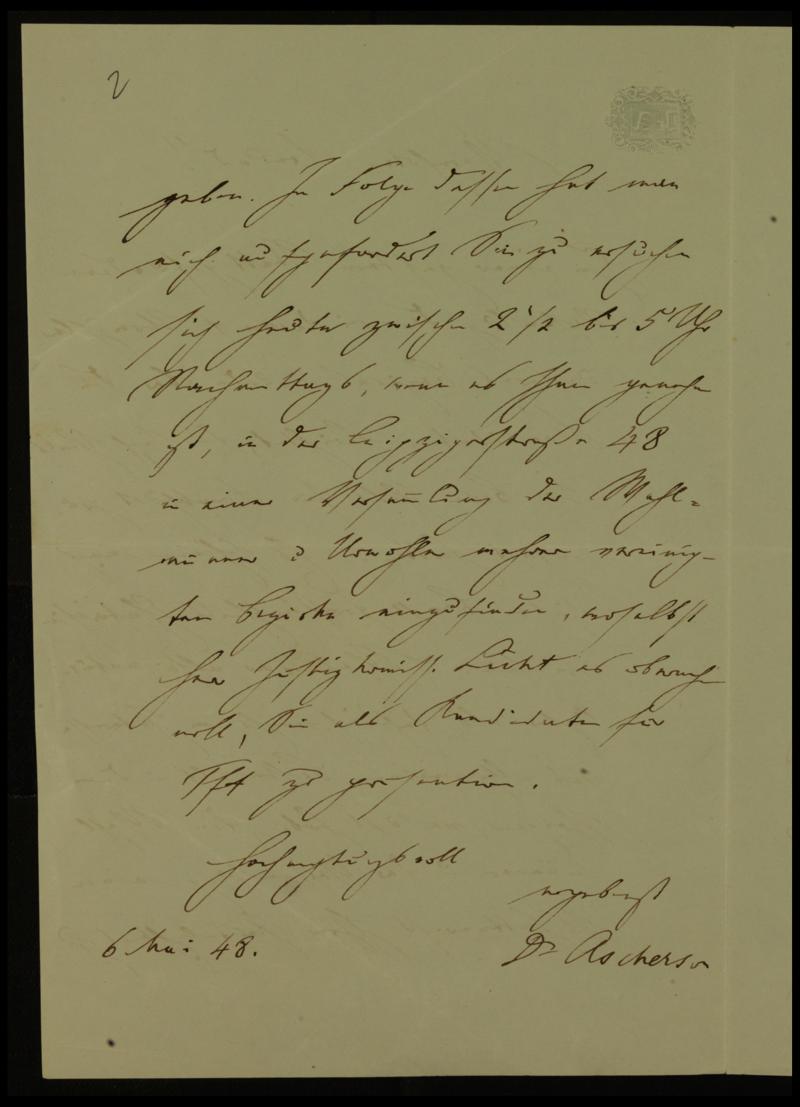 2
geben. In Folge dessen hat man
mich aufgefordert Sie zu ersuchen
sich heute zwischen 2 1/2 bis 5 Uhr
Nachmittags, wenn es Ihnen genehm
ist, in der Leipzigerstraße 48
in einer Versam̄lung der Wahl=
männer & Urwähler mehrer vereinig-
ten Bezirke einzufinden, woselbst
Herr Justizkomiss. Licht es
will, Sie als Kandidaten für
Fft zu presentiren.
Hochachtungsvoll
ergebenst
6 Mai 48.
Dr Ascherson